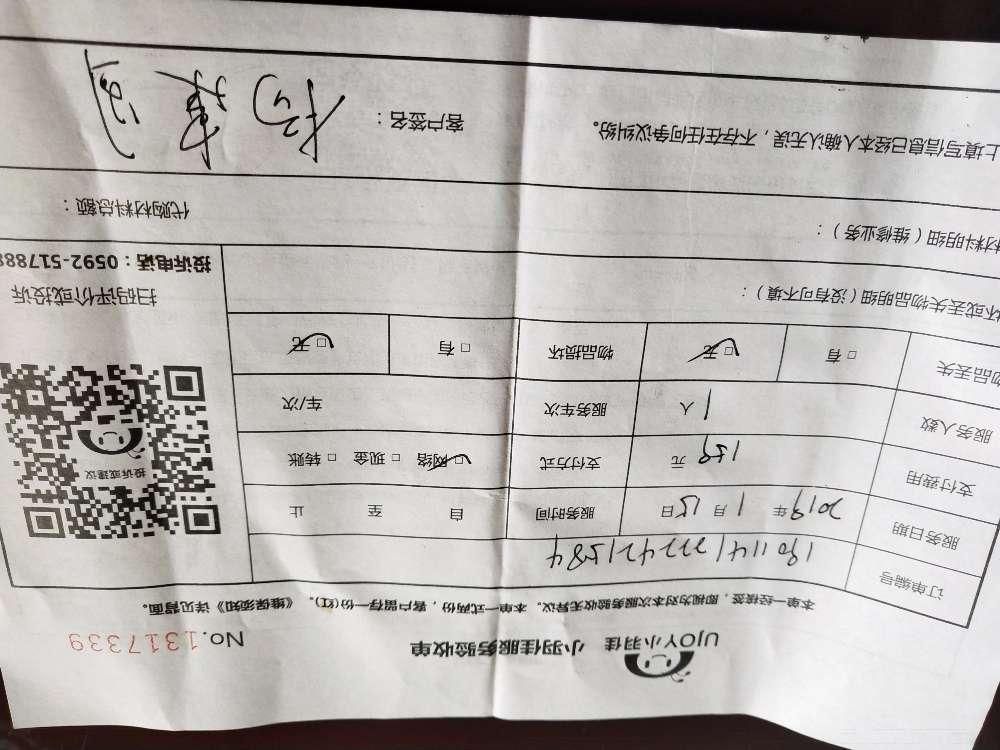 UJOY小羽佳 小羽佳服务验收单 No.1317339
本单一经接签，即视为对本次服务验收无异议。本单一式两份，客户留存一份(红)。《维保须知》详见背面。
订单编号 1901141222421584
服务日期 2019年 1月 15日 服务时间 自 至 止
支付费用 159 元 支付方式 □网络 □现金 □转账
服务人数 1 人 服务车次 车/次
物品丢失 □有 □无 物品损坏 □有 □无
投诉或建议
扫码评价或投诉
投诉电话：0592-517888
坏或丢失物品明细（没有可不填）：
材料明细（维修业务）：
代购材料总额：
上填写信息已经本人确认无误，不存在任何争议纠纷。 客户签名：